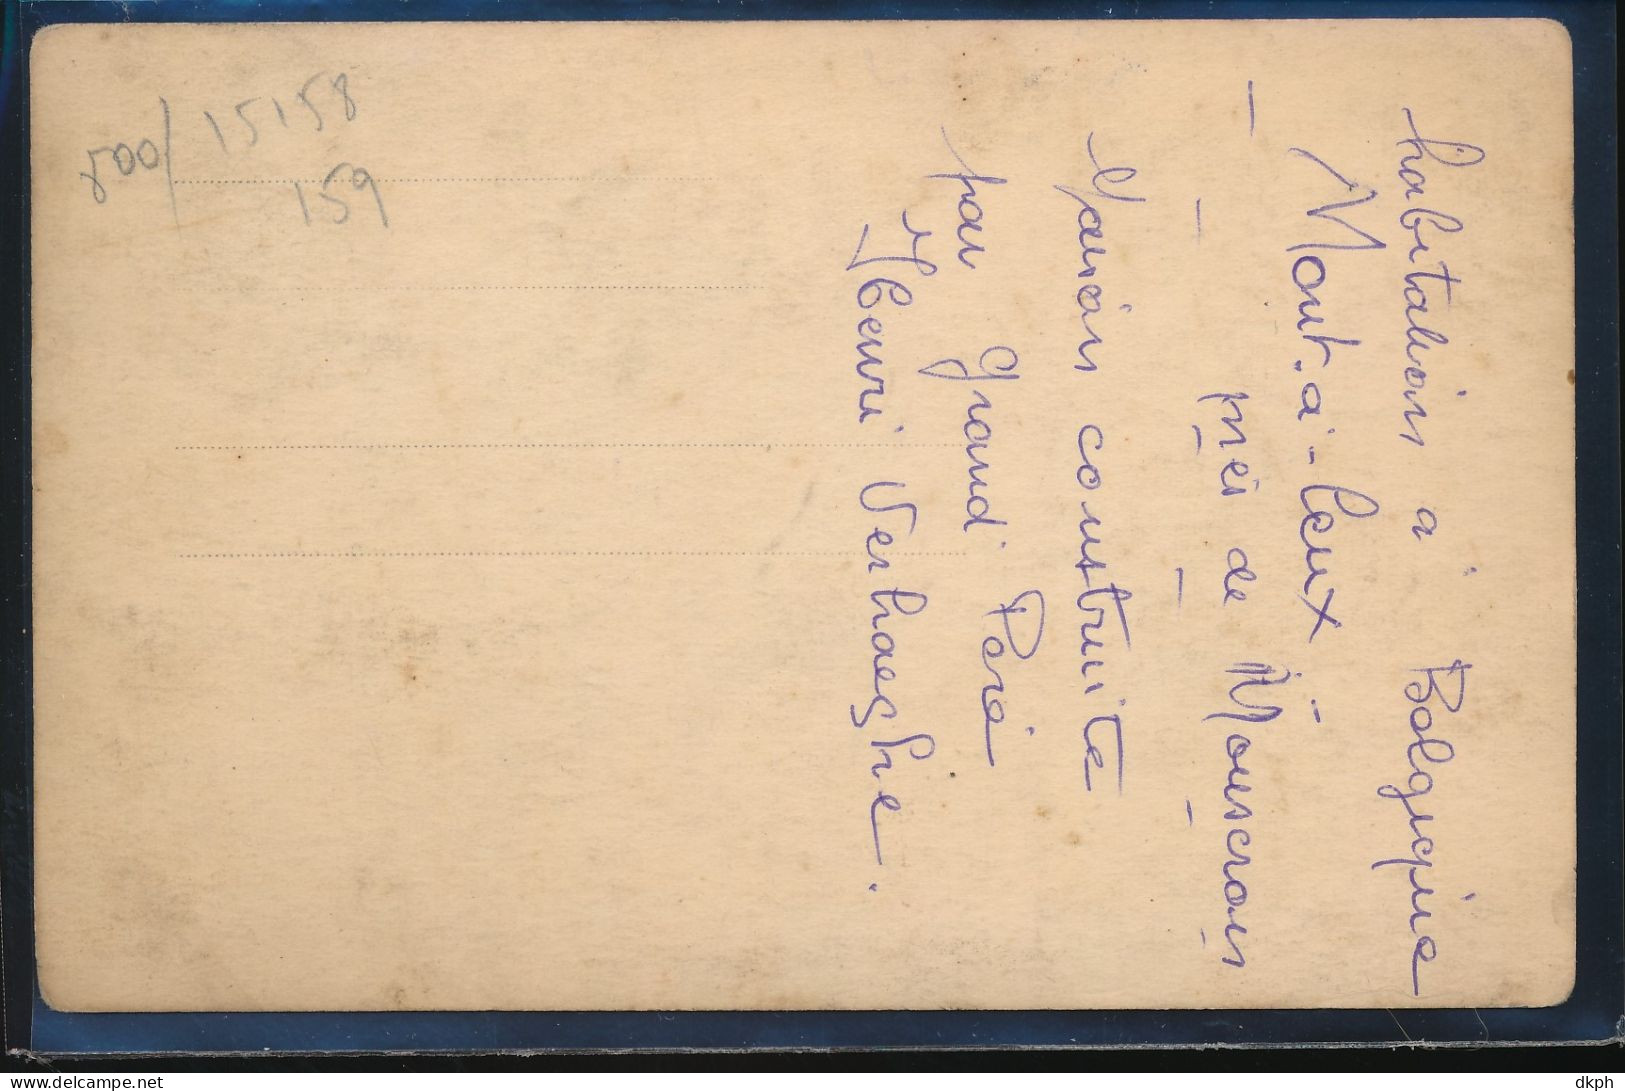 habitation à Belgique
Mont-à-leux -
près de Mouscron
Maison construite
par grand Père
Henri Verhaeghe.
800/ 15158
159
delcampe.net
dkph